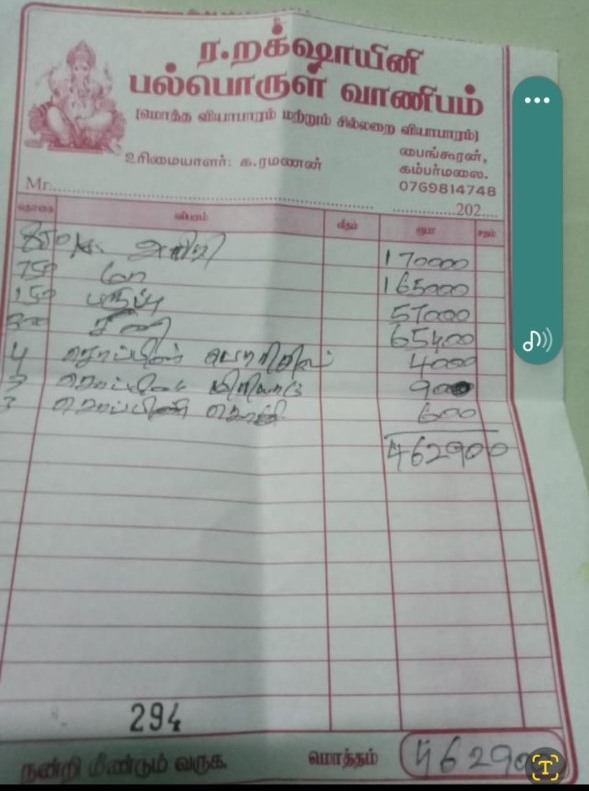 ர.றக்ஷாயினி
பல்பொருள் வாணிபம்
(மொத்த வியாபாரம் மற்றும் சில்லறை வியாபாரம்)
உரிமையாளர்: க.ரமணன்
பைங்கூரன்,
கம்பர்மலை.
0769814748
Mr. 202
தொகை விபரம் வீதம் ரூபா சதம்
850 அரிசி 170000
750 மா 165000
150 பருப்பு 57000
சீனி 65400
4 சொப்பின் 4000
சொப்பின் 900
3 சொப்பின் 600
462900
294
நன்றி மீண்டும் வருக. மொத்தம் 46290